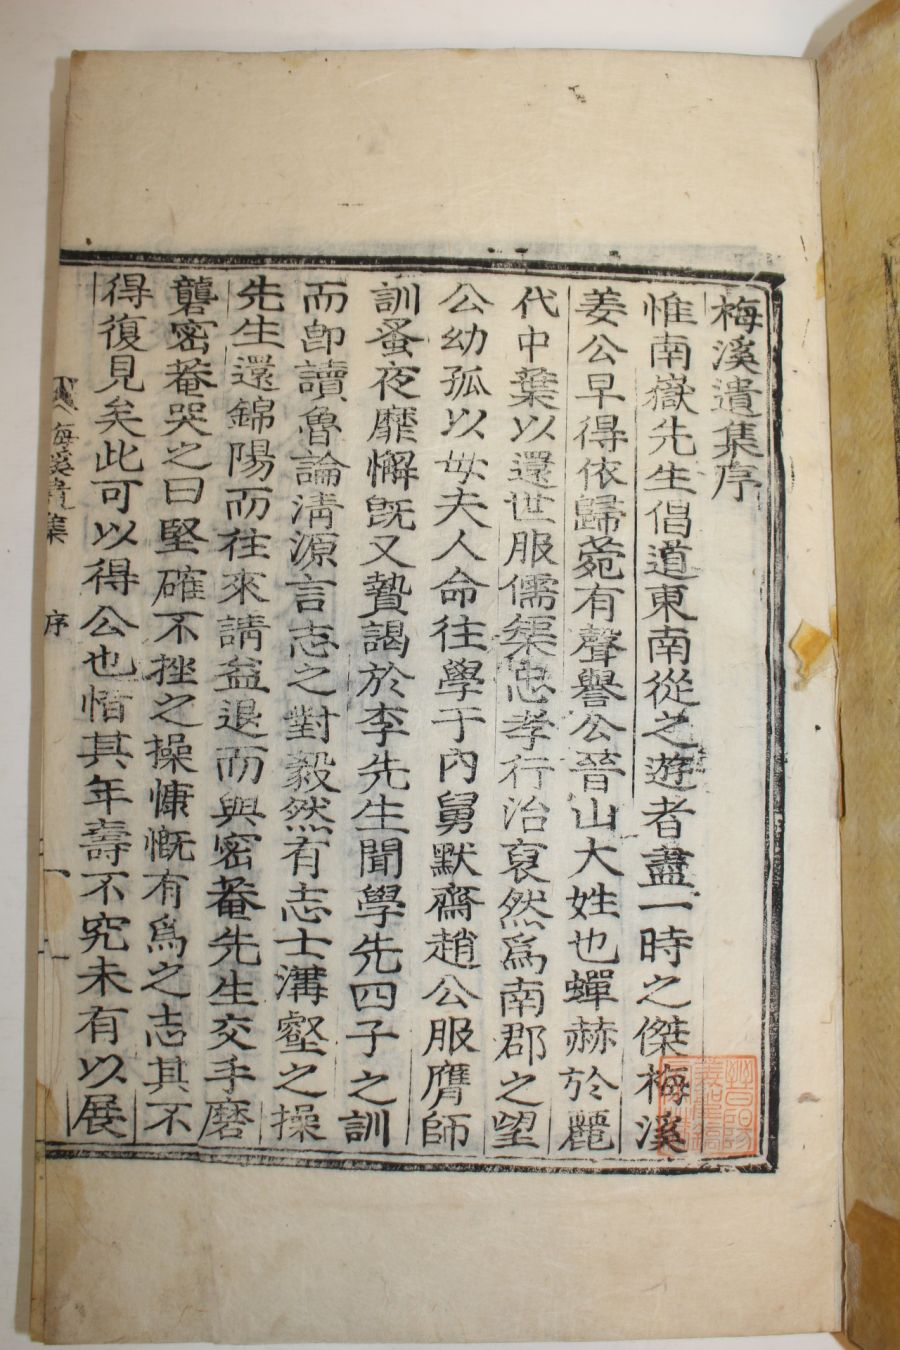 梅溪遺集序
惟南嶽先生倡道東南從之遊者盡一時之傑梅溪
姜公早得依歸菀有聲譽公晉山大姓也蟬赫於麗
代中葉以還世服儒榘忠孝行治裒然爲南郡之望
公幼孤以母夫人命往學于內舅默齋趙公服膺師
訓蚤夜靡懈旣又贄謁於李先生聞學先四子之訓
而卽讀魯論淸源言志之對毅然有志士溝壑之操
先生還錦陽而往來請益退而與密菴先生交手磨
礱密菴哭之曰堅確不挫之操慷慨有爲之志其不
得復見矣此可以得公也惜其年壽不究未有以展
梅溪遺集 序 一